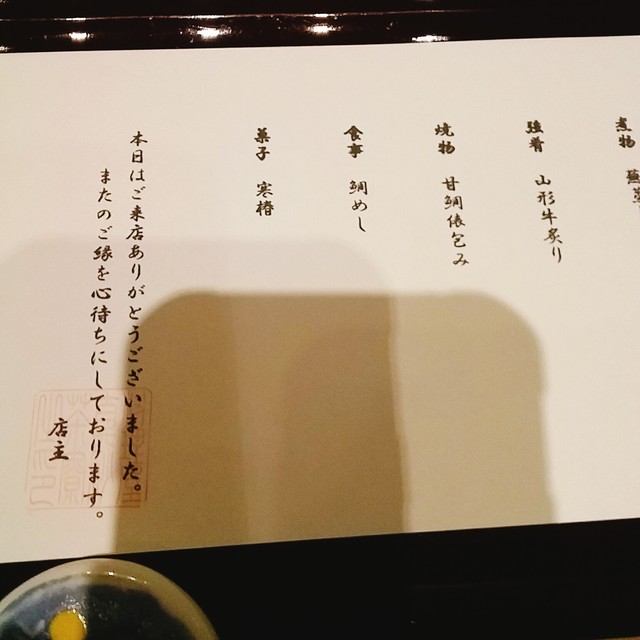 煮物
強肴 山形牛炙り
焼物 甘鯛俵包み
食事 鯛めし
菓子 寒椿
本日はご来店ありがとうございました。
またのご縁を心待ちにしております。
店主